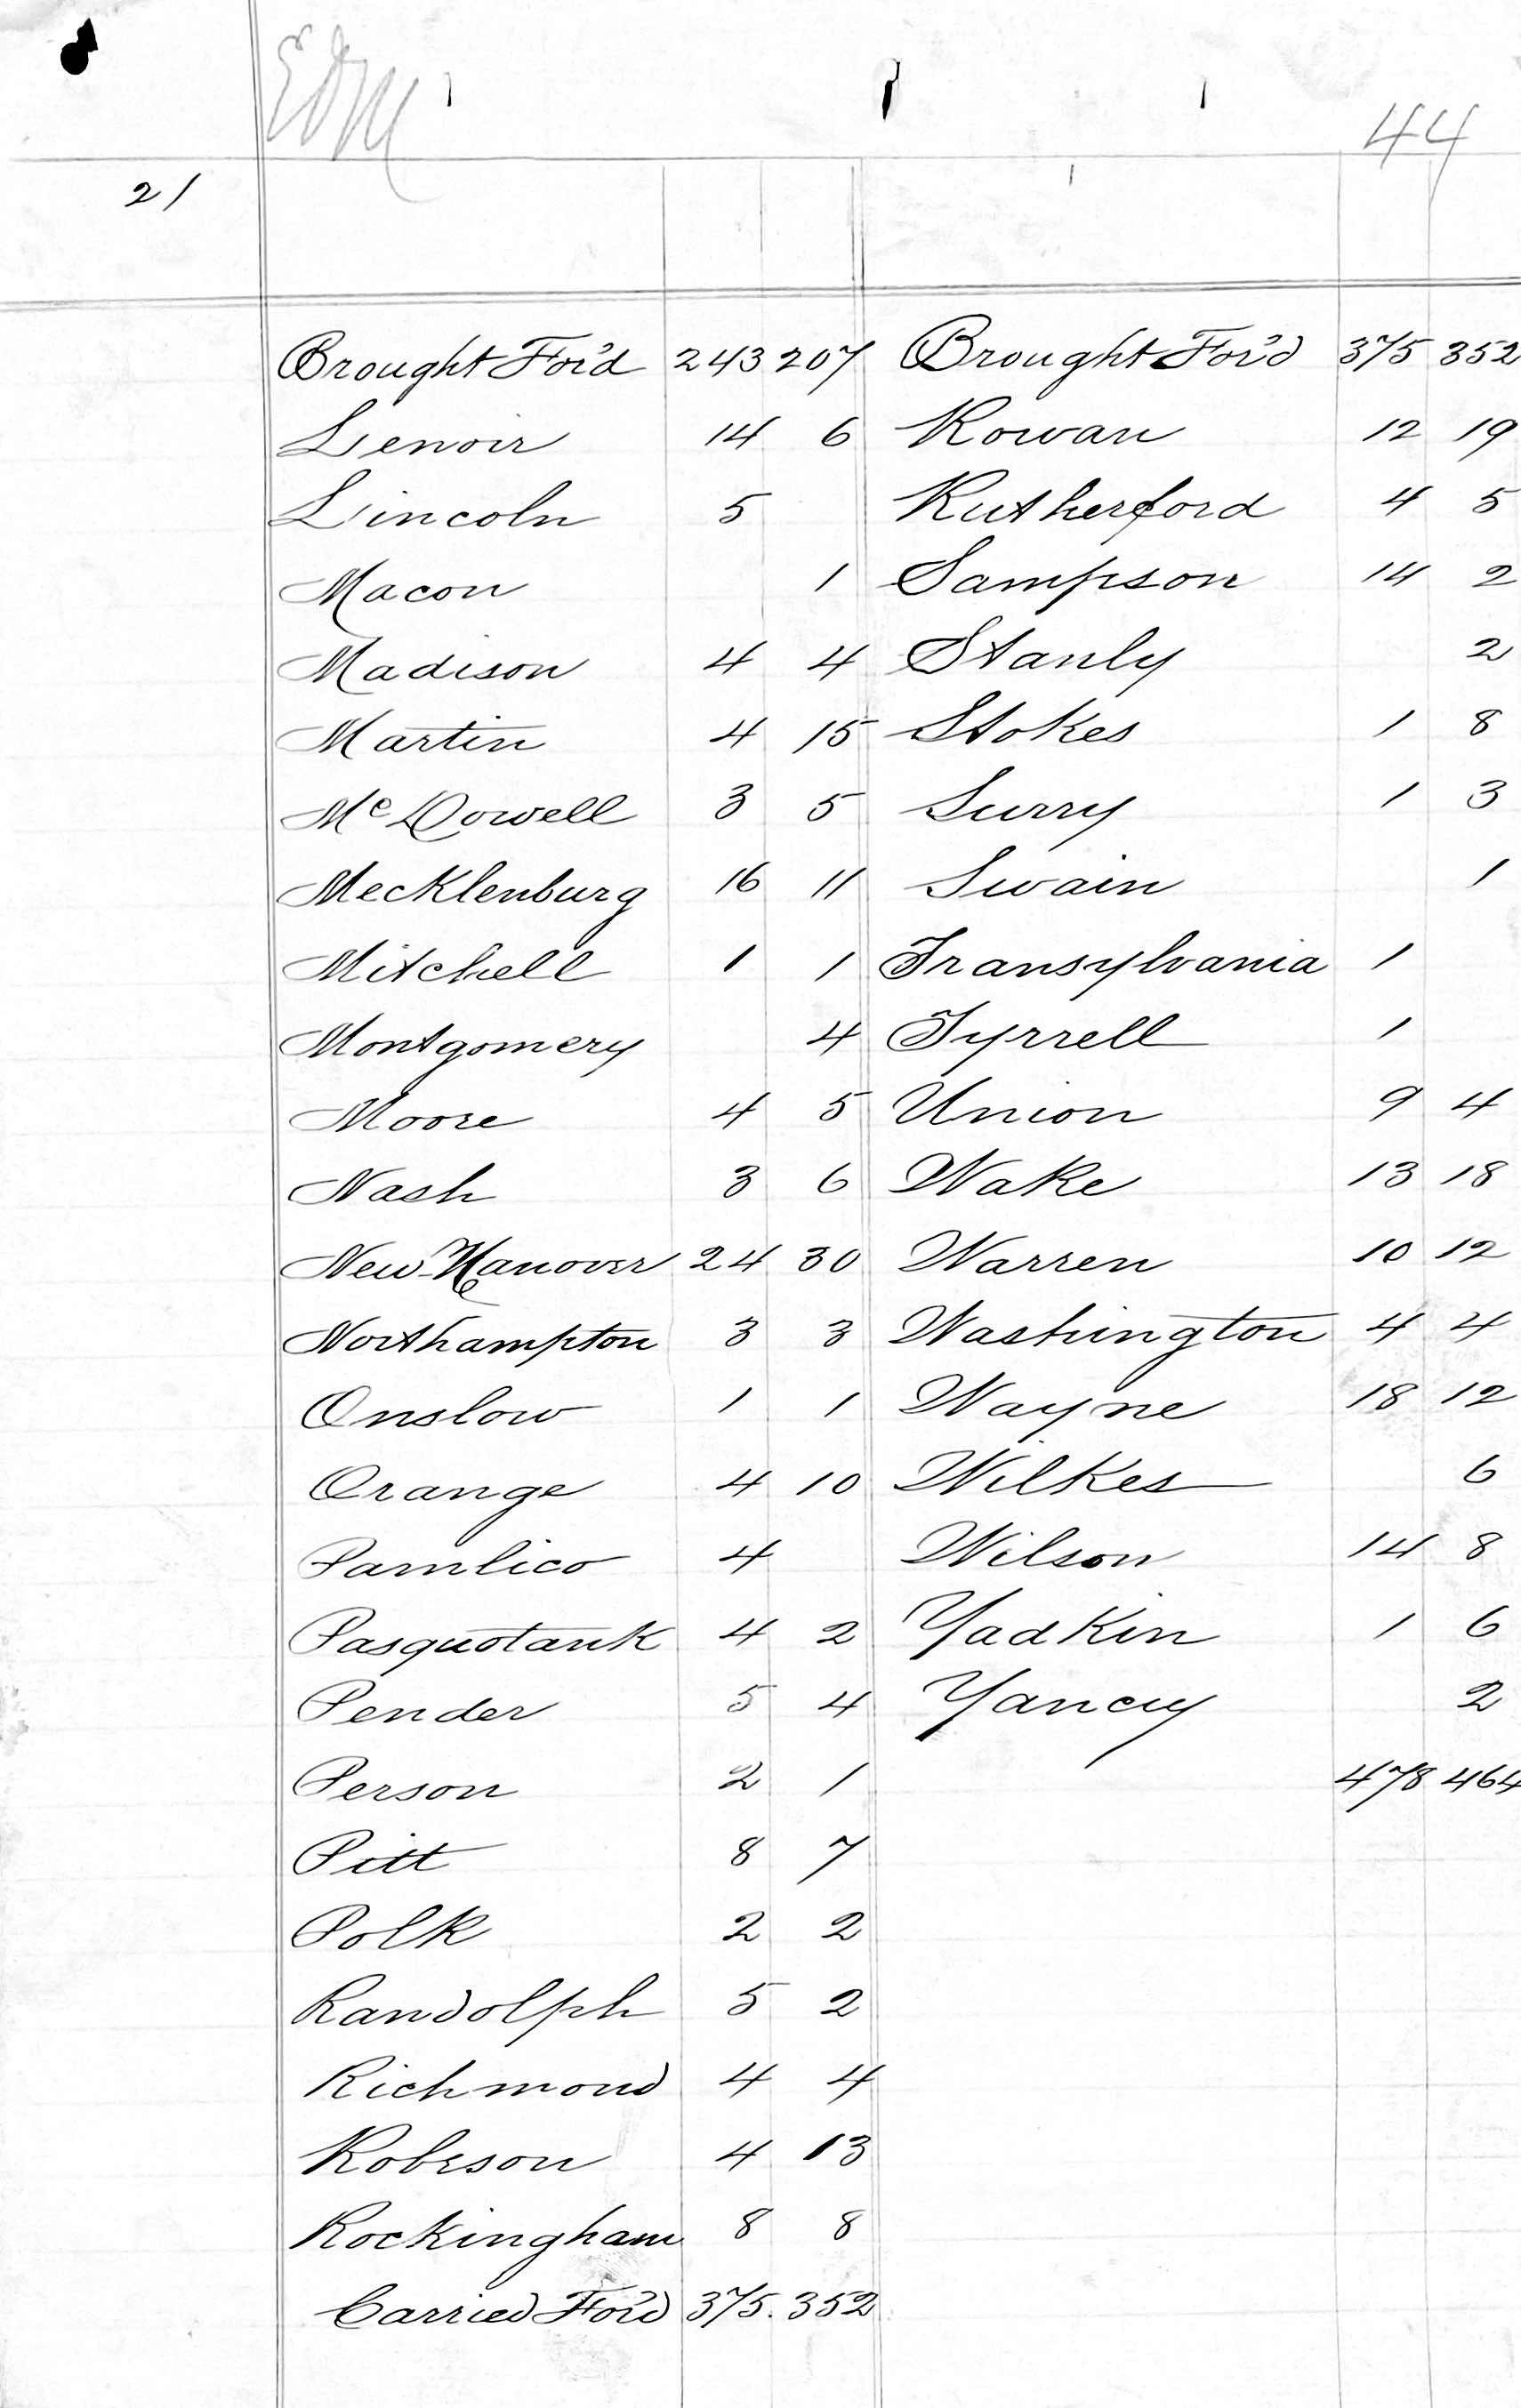 EDM
44
21
Brought For'd 243 207
Lenoir 14 6
Lincoln 5
Macon 1
Madison 4 4
Martin 4 15
McDowell 3 5
Mecklenburg 16 11
Mitchell 1 1
Montgomery 4
Moore 4 5
Nash 3 6
New Hanover 24 30
Northampton 3 3
Onslow 1 1
Orange 4 10
Pamlico 4
Pasquotank 4 2
Pender 5 4
Person 2 1
Pitt 8 7
Polk 2 2
Randolph 5 2
Richmond 4 4
Robeson 4 13
Rockingham 8 8
Carried For'd 375. 352
Brought For'd 375 352
Rowan 12 19
Rutherford 4 5
Sampson 14 2
Stanly 2
Stokes 1 8
Surry 1 3
Swain 1
Transylvania 1
Tyrrell 1
Union 9 4
Wake 13 18
Warren 10 12
Washington 4 4
Wayne 18 12
Wilkes 6
Wilson 14 8
Yadkin 1 6
Yancy 2
478 464